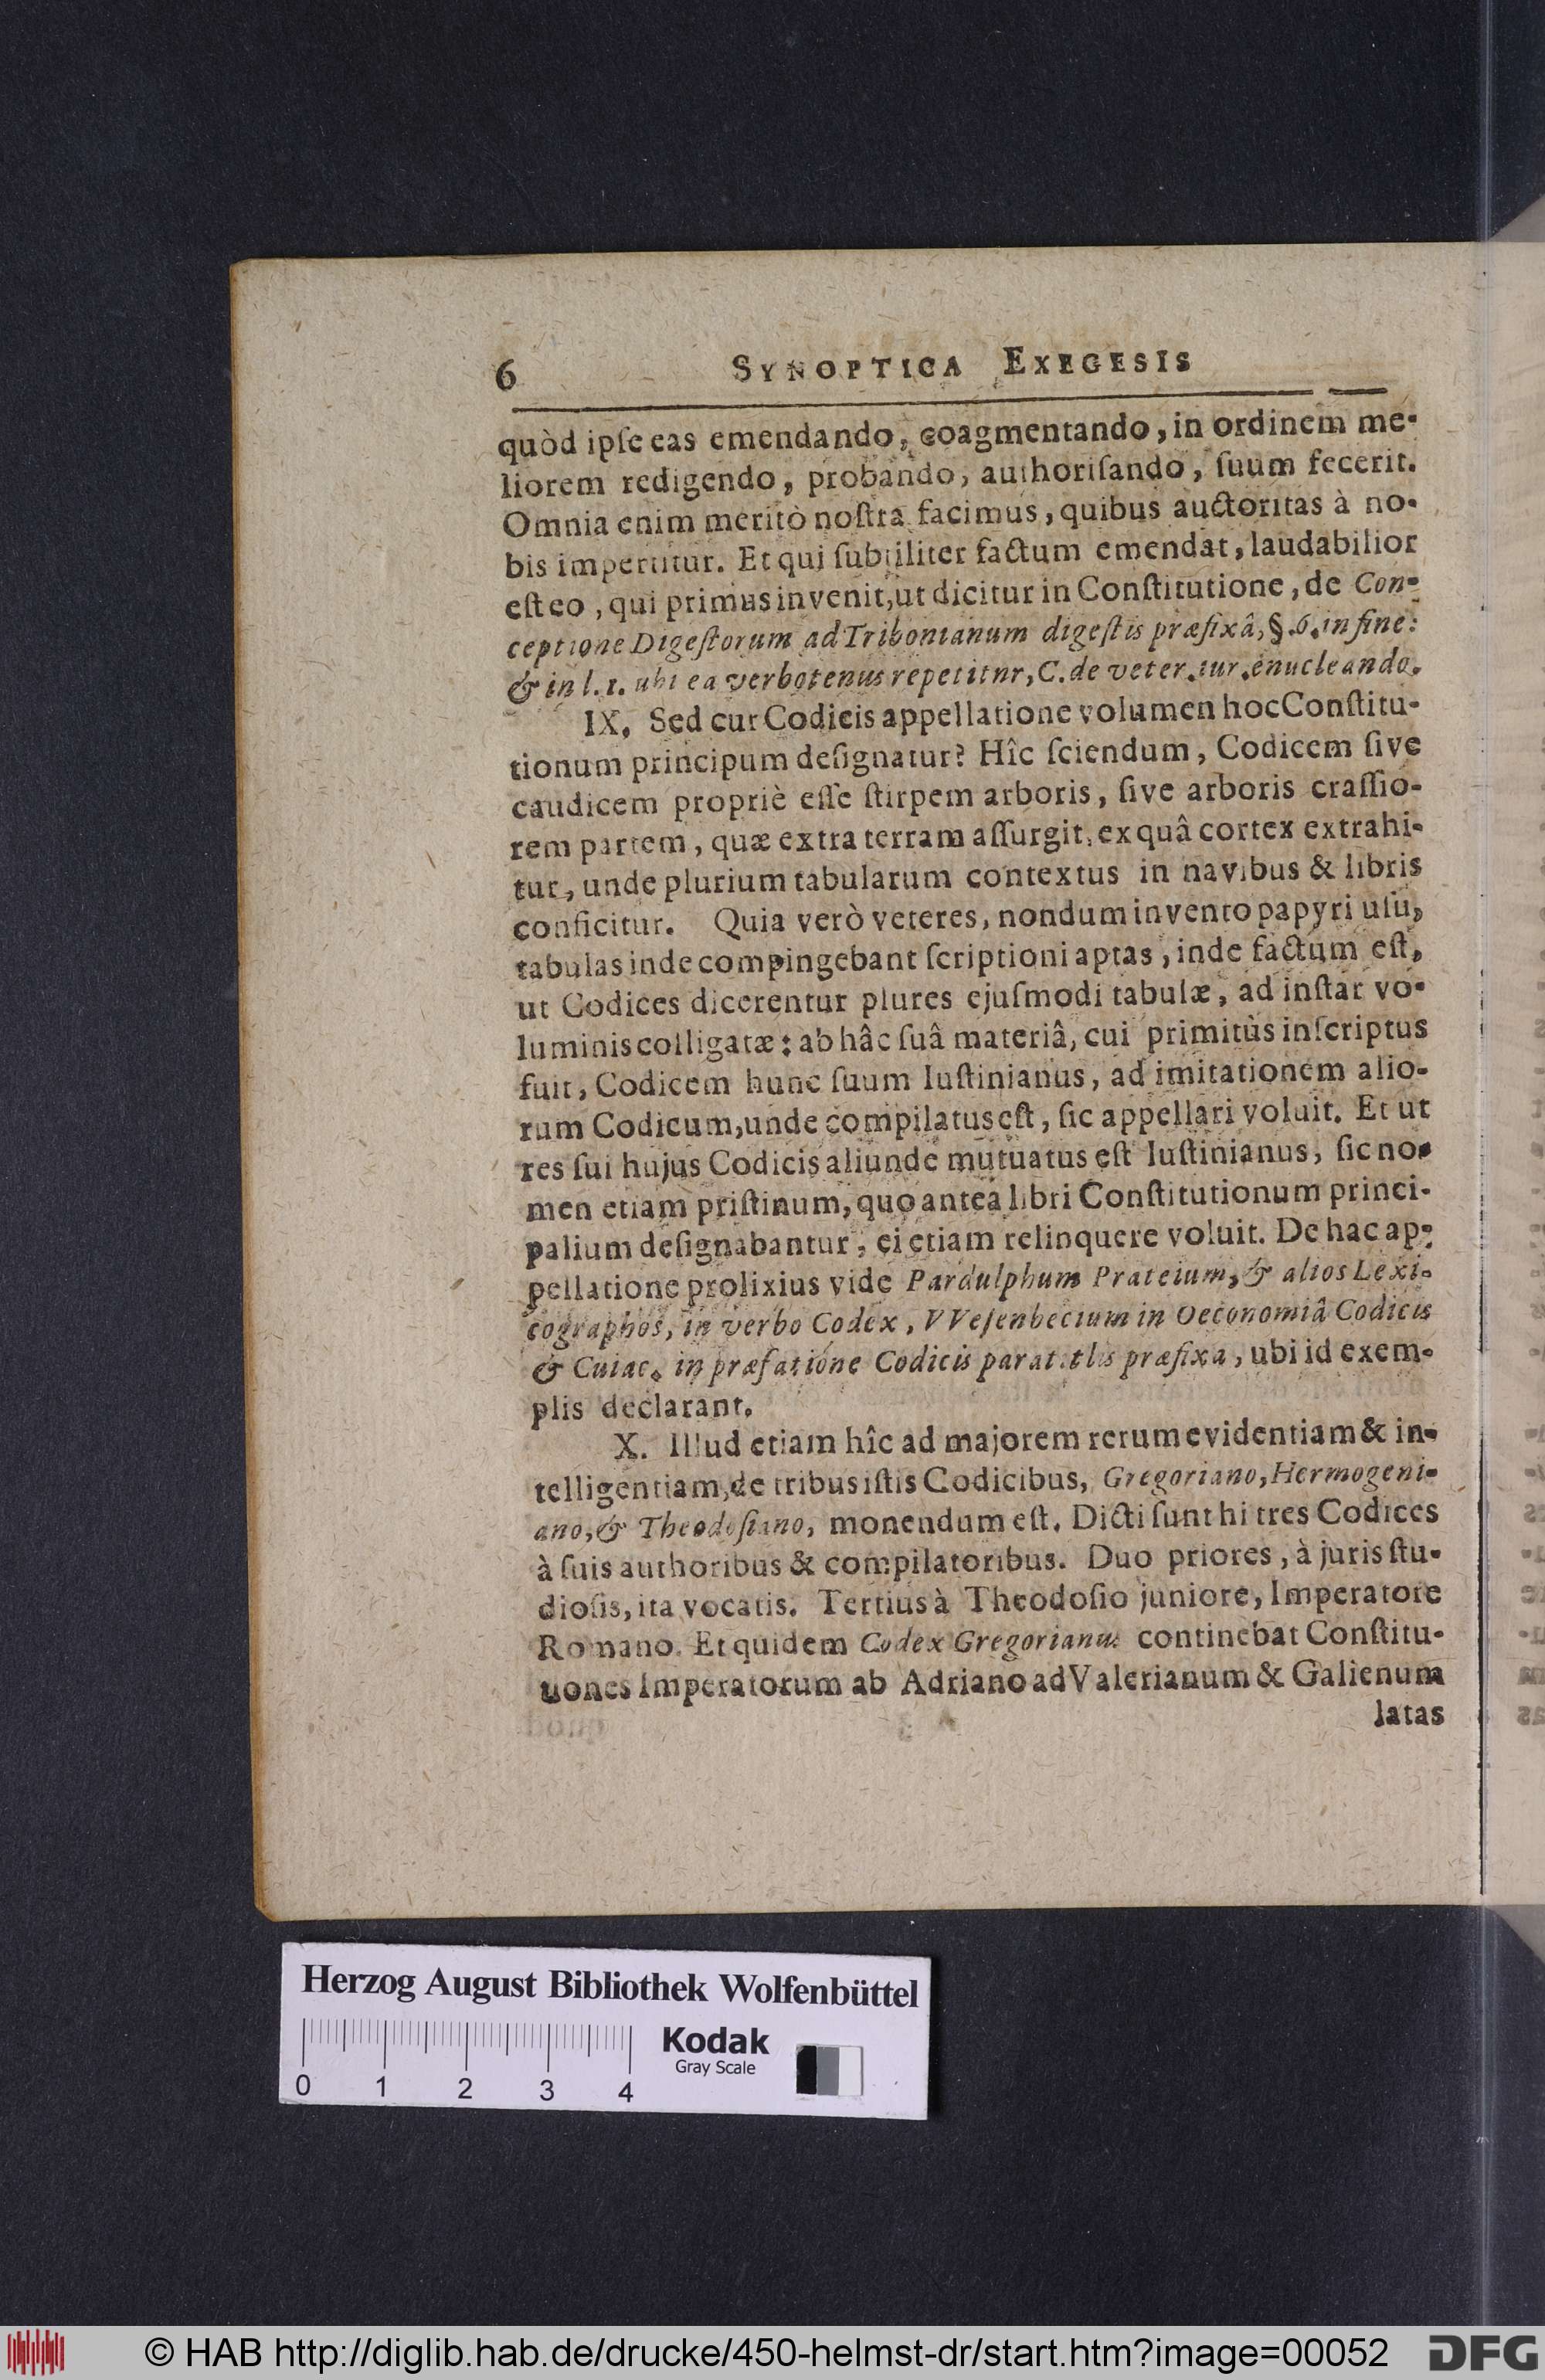 6 SYNOPTICA EXEGESIS
quòd ipſe eas emendando, coagmentando, in ordinem me-
liorem redigendo, probando, authoriſando, ſuum fecerit.
Omnia enim meritò noſtra facimus, quibus auctoritas à no-
bis impertitur. Et qui ſubtiliter factum emendat, laudabilior
eſt eo, qui primus invenit, ut dicitur in Conſtitutione, de Con-
ceptione Digeſtorum ad Tribonianum digeſtis præfixâ, §. 6. in fine:
& in l. 1. ubi ea verbotenus repetitnr, C. de veter. iur. enucleando.
IX. Sed cur Codicis appellatione volumen hoc Conſtitu-
tionum principum deſignatur? Hîc ſciendum, Codicem ſive
caudicem propriè eſſe ſtirpem arboris, ſive arboris craſſio-
rem partem, quæ extra terram aſſurgit, ex quâ cortex extrahi-
tur, unde plurium tabularum contextus in navibus & libris
conficitur. Quia verò veteres, nondum invento papyri uſu,
tabulas inde compingebant ſcriptioni aptas, inde factum eſt,
ut Codices dicerentur plures ejuſmodi tabulæ, ad inſtar vo-
luminis colligatæ: ab hâc ſuâ materiâ, cui primitùs inſcriptus
fuit, Codicem hunc ſuum Iuſtinianus, ad imitationem alio-
rum Codicum, unde compilatus eſt, ſic appellari voluit. Et ut
res ſui hujus Codicis aliunde mutuatus eſt Iuſtinianus, ſic no-
men etiam priſtinum, quo antea libri Conſtitutionum princi-
palium deſignabantur, ei etiam relinquere voluit. De hac ap-
pellatione prolixius vide Pardulphum Prateium, & alios Lexi-
cographos, in verbo Codex, VVeſenbecium in Oeconomiâ Codicis
& Cuiac. in præfatione Codicis paratitlis præfixa, ubi id exem-
plis declarant.
X. Illud etiam hîc ad majorem rerum evidentiam & in-
telligentiam, de tribus iſtis Codicibus, Gregoriano, Hermogeni-
ano, & Theodoſiano, monendum eſt. Dicti ſunt hi tres Codices
à ſuis authoribus & compilatoribus. Duo priores, à juris ſtu-
dioſis, ita vocatis. Tertius à Theodoſio juniore, Imperatore
Romano. Et quidem Codex Gregorianus continebat Conſtitu-
tiones Imperatorum ab Adriano ad Valerianum & Galienum
latas
Herzog August Bibliothek Wolfenbüttel
Kodak
Gray Scale
0 1 2 3 4
© HAB http://diglib.hab.de/drucke/450-helmst-dr/start.htm?image=00052 DFG